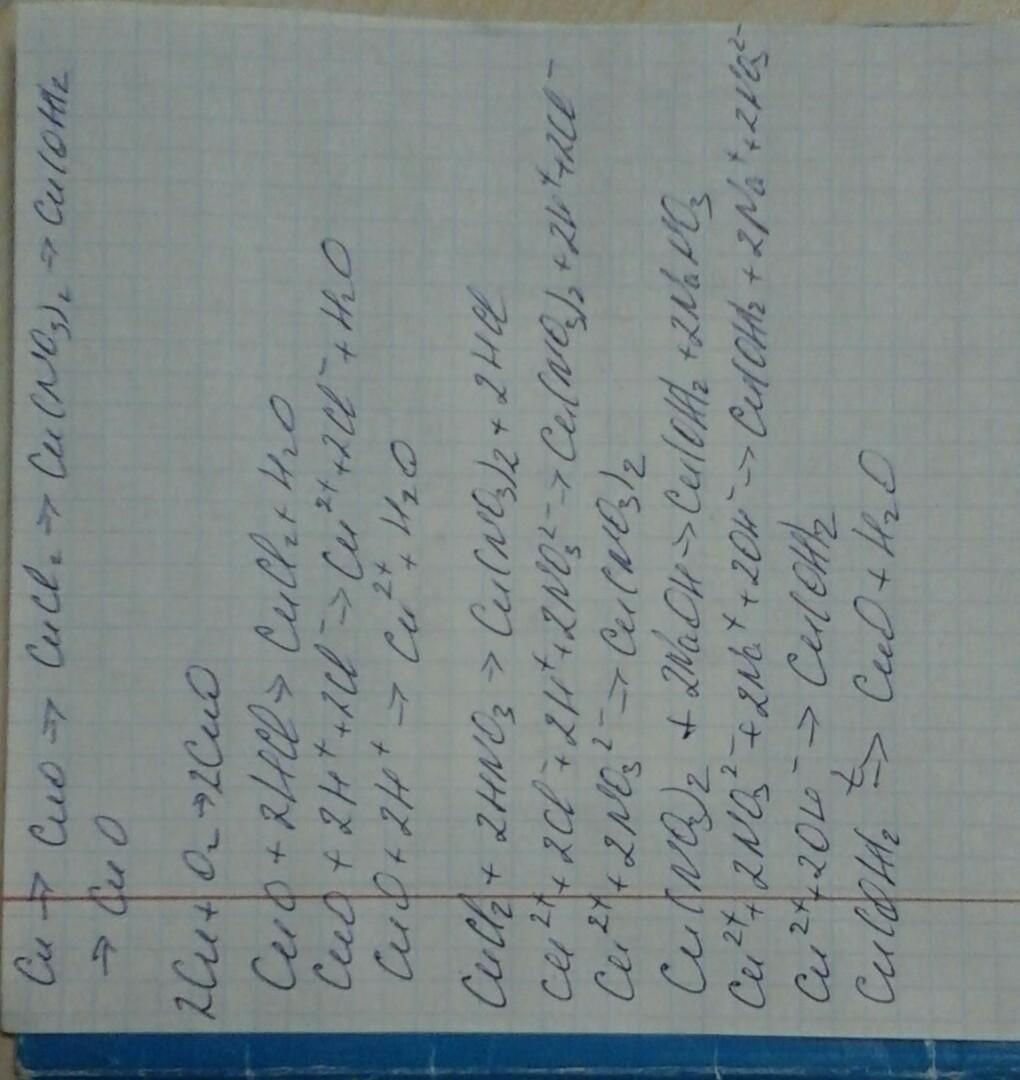 Cu → CuO → CuCl₂ → Cu(NO₃)₂ → Cu(OH)₂
→ CuO
2Cu + O₂ → 2CuO
CuO + 2HCl → CuCl₂ + H₂O
CuO + 2H⁺ + 2Cl⁻ → Cu²⁺ + 2Cl⁻ + H₂O
CuO + 2H⁺ → Cu²⁺ + H₂O
CuCl₂ + 2HNO₃ → Cu(NO₃)₂ + 2HCl
Cu²⁺ + 2Cl⁻ + 2H⁺ + 2NO₃²⁻ → Cu(NO₃)₂ + 2H⁺ + 2Cl⁻
Cu²⁺ + 2NO₃²⁻ → Cu(NO₃)₂
Cu(NO₃)₂ + 2NaOH → Cu(OH)₂ + 2NaNO₃
Cu²⁺ + 2NO₃²⁻ + 2Na⁺ + 2OH⁻ → Cu(OH)₂ + 2Na⁺ + 2NO₃²⁻
Cu²⁺ + 2OH⁻ → Cu(OH)₂
Cu(OH)₂ t→ CuO + H₂O